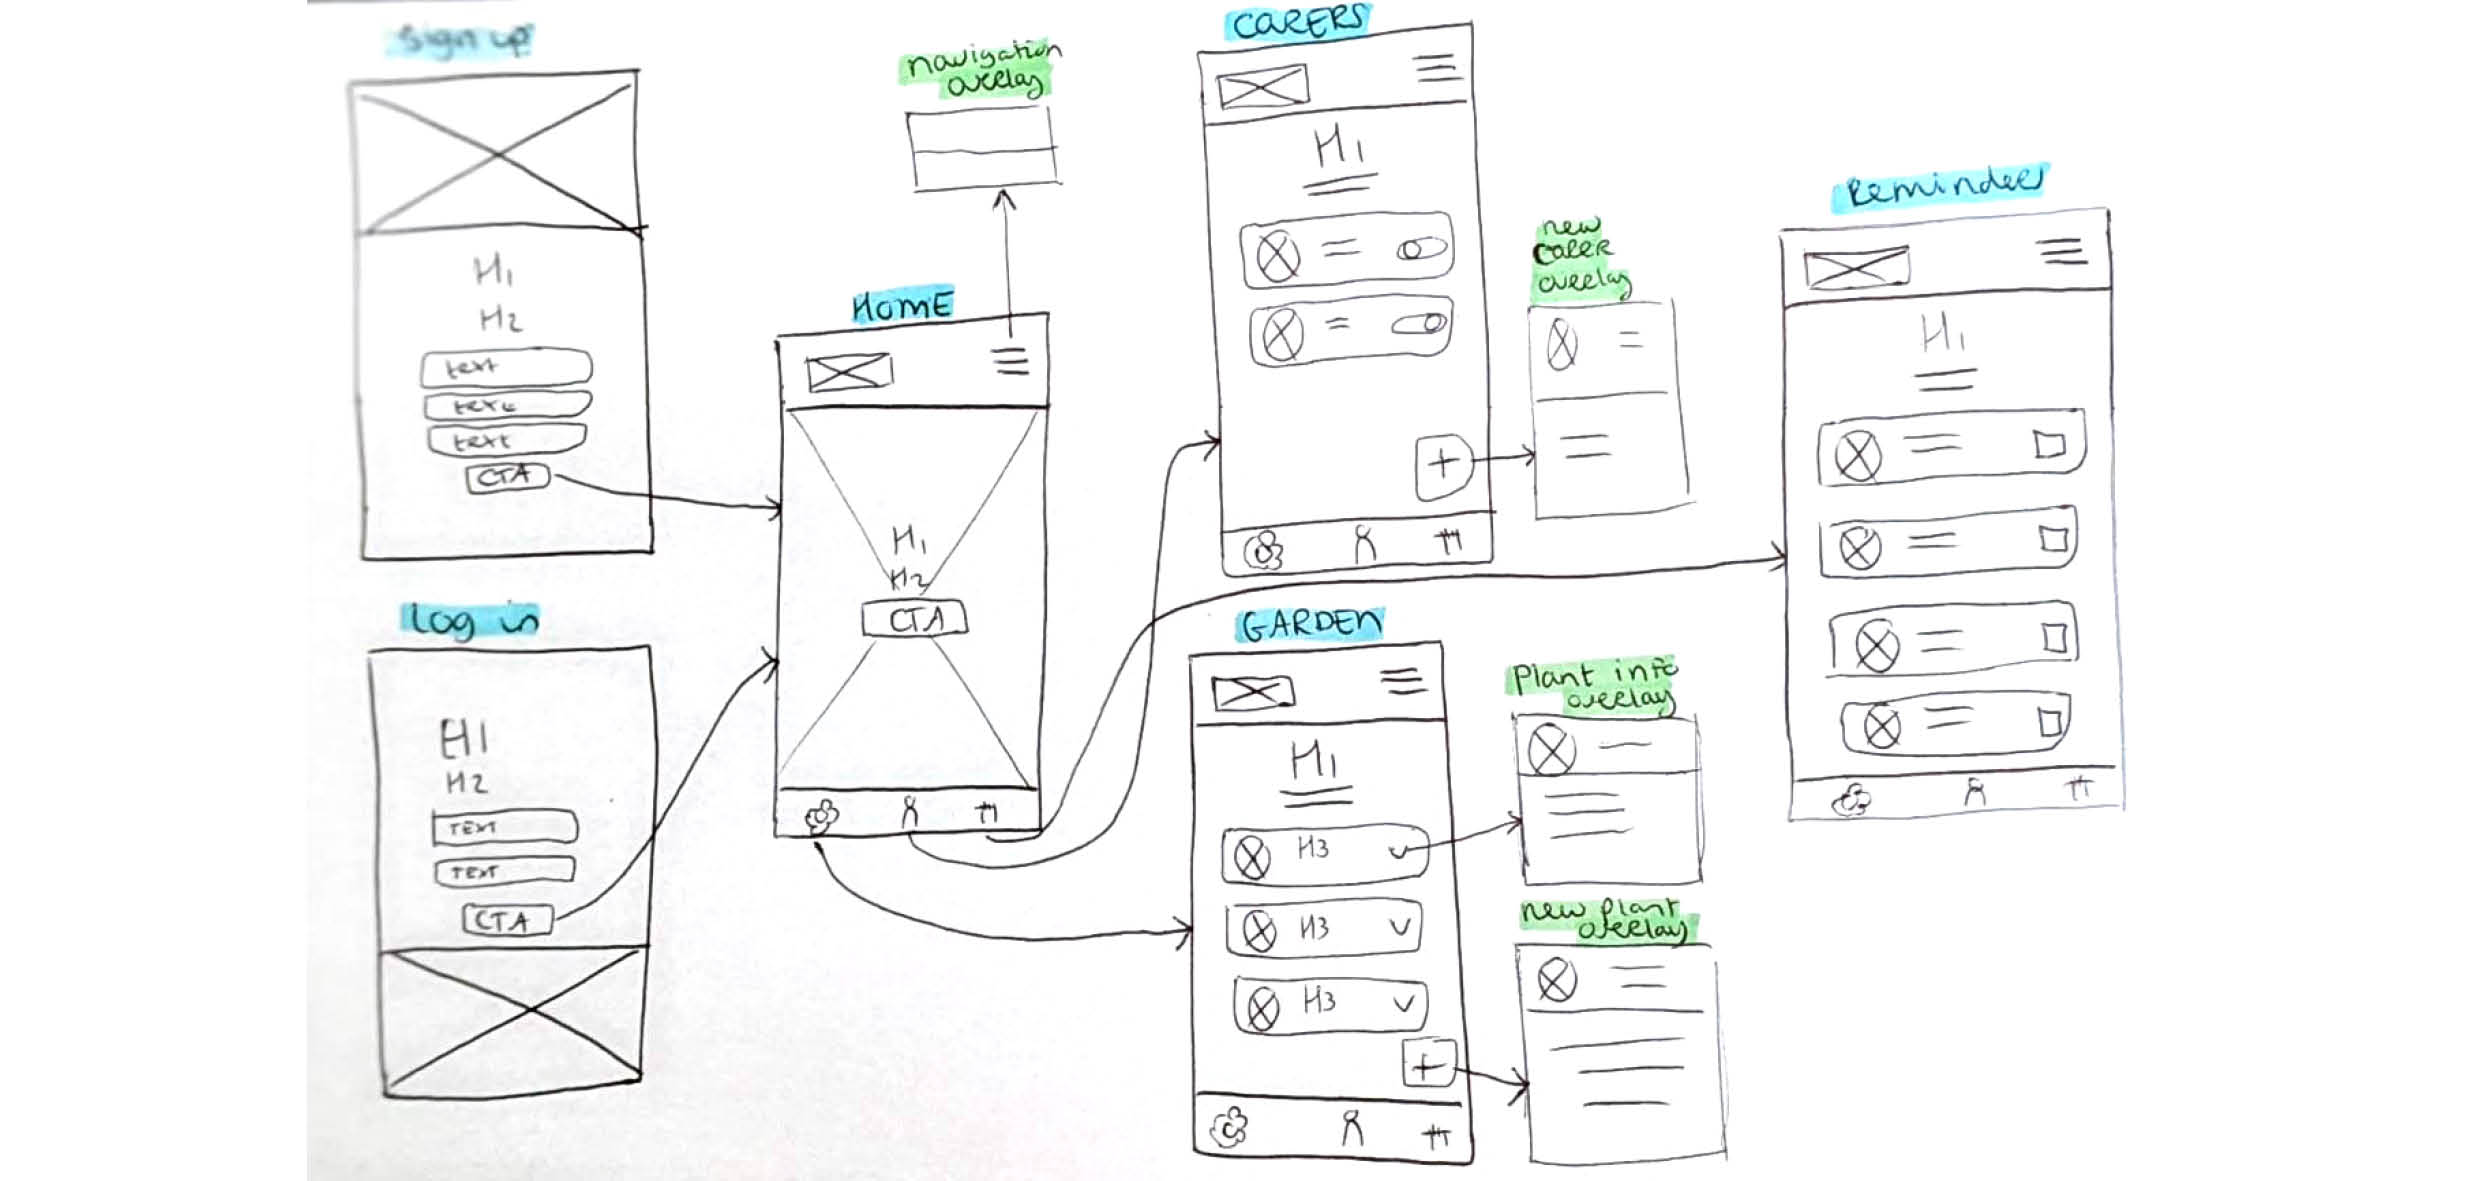 Sign up
H1
H2
text
text
text
CTA
Log in
H1
H2
TEXT
TEXT
CTA
navigation
overlay
HOME
H1
H2
CTA
CARERS
H1
+
new
carer
overlay
GARDEN
H1
H3
H3
H3
+
Plant info
overlay
new plant
overlay
Reminder
H1